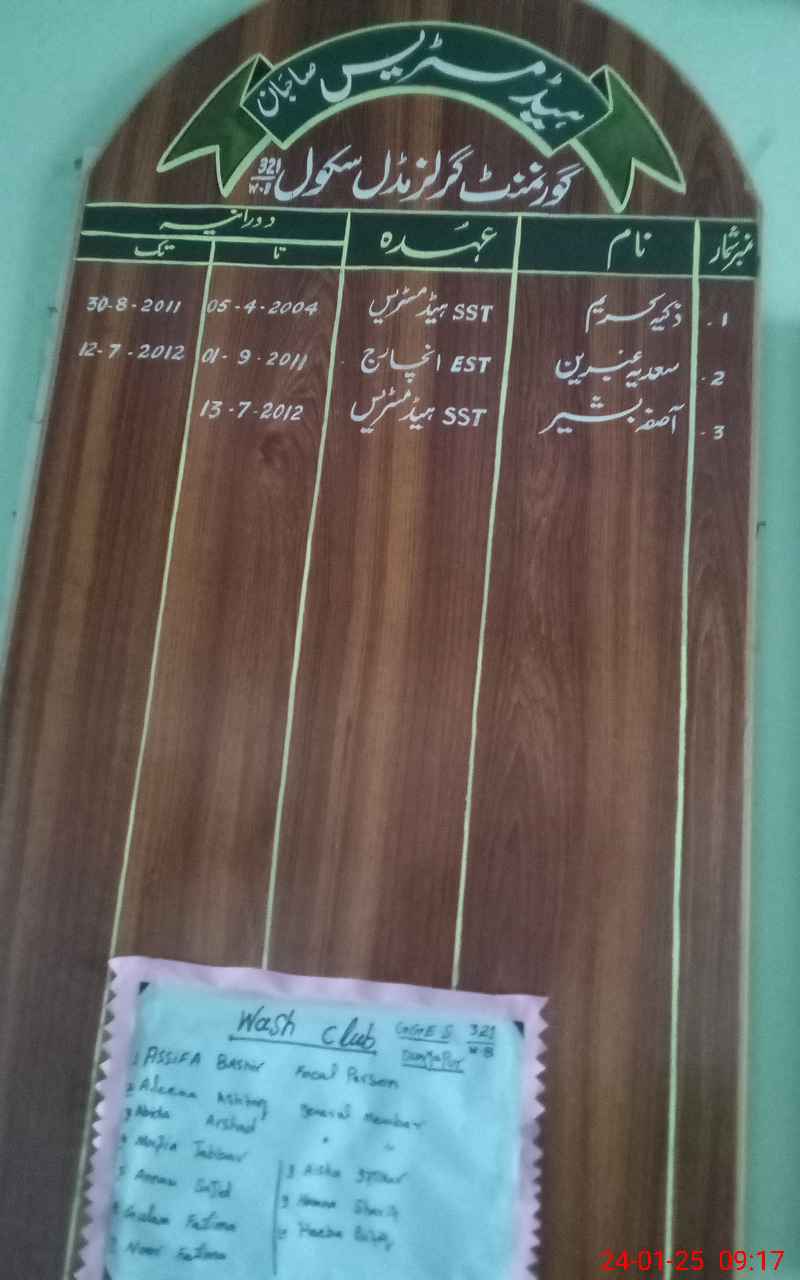 ہیڈ مسٹریس صاحبان
گورنمنٹ گرلز مڈل سکول 321/W-B
نمبر شمار نام عہدہ دورانیہ
تا تک
1. ذکیہ کریم SST ہیڈ مسٹریس 05-4-2004 30-8-2011
2. سعدیہ عنبرین EST انچارج 01-9-2011 12-7-2012
3. آصفہ بشیر SST ہیڈ مسٹریس 13-7-2012
Wash Club GGES 321/W-B
Dunyapur
1 ASSIFA BASHIR Focal Person
2 Aleena Ashfaq General Member
3 Arshad " "
4 Jabbar
5 Sajid
6 Fatima
7 Noor Fatima
8 Aisha
9 Sharif
24-01-25 09:17